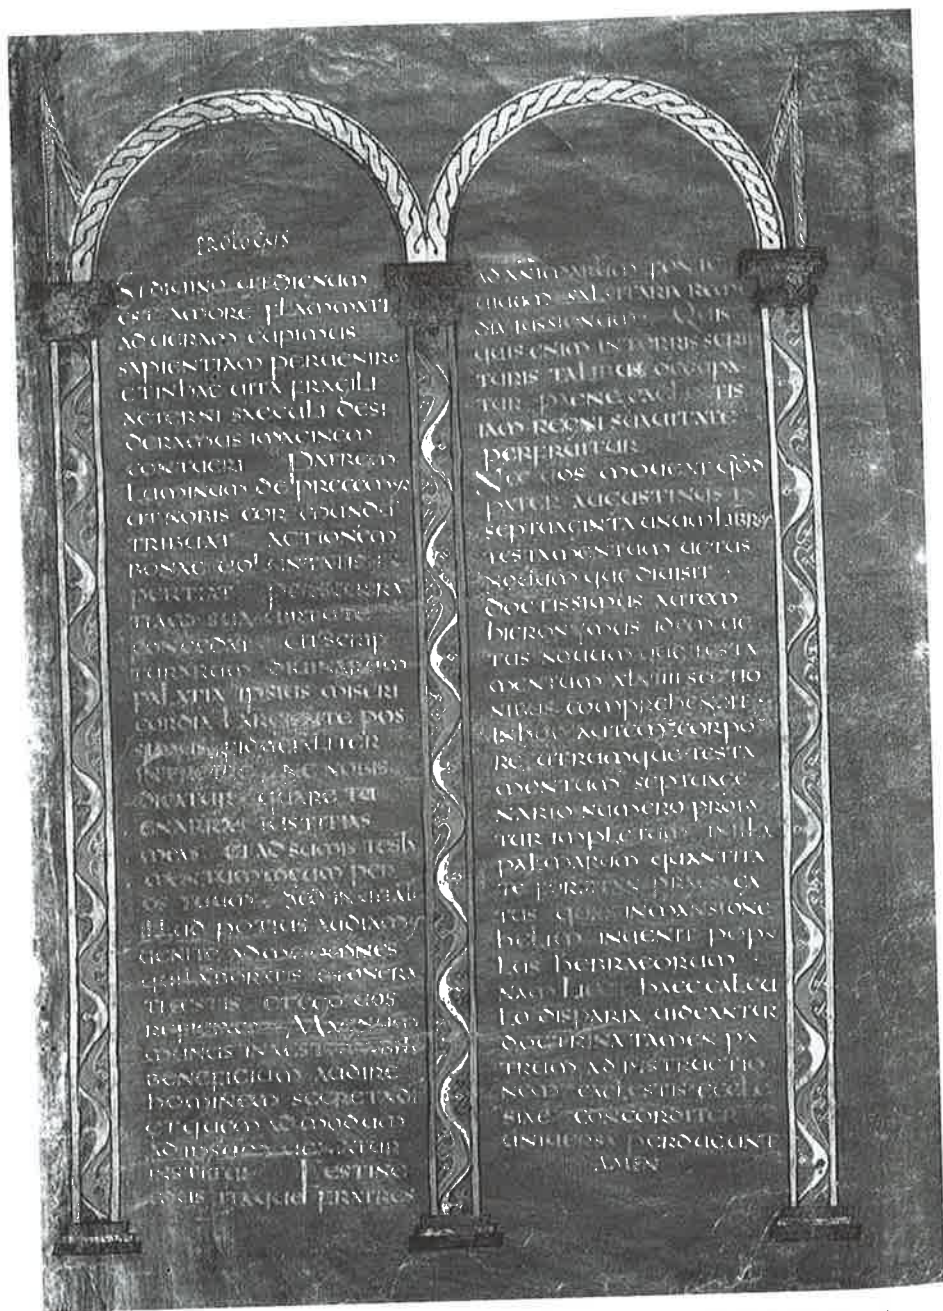 PROLOGUS
SI DIUINO UT DIGNUM
EST AMORE FLAMMATI
AD UERAM CUPIMUS
SAPIENTIAM PERUENIRE
ET IN HAC UITA FRAGILI
AETERNI SAECULI DESI
DERAMUS IMAGINEM
CONTUERI PATREM
LUMINUM DEPRECEMUR
UT NOBIS COR MUNDU
TRIBUAT ACTIONEM
BONAE UOLUNTATIS IM
PERTIAT PERSEUERAN
TIAM SUA UIRTUTE
CONCEDAT UT SCRIP
TURARUM DIUINARUM
PALATIA IPSIUS MISERI
CORDIA LARGIENTE POS
SIMUS FIDUCIALITER
INTROIRE NE NOBIS
DICATUR QUARE TU
ENARRAS IUSTITIAS
MEAS ET ADSUMIS TESTA
MENTUM MEUM PER
OS TUUM SED INUITATI
ILLUD POTIUS AUDIAMUS
UENITE AD ME OMNES
QUI LABORATIS ET ONERA
TI ESTIS ET EGO UOS
REFICIAM MAGNUM
MUNUS INAESTIMABILE
BENEFICIUM AUDIRE
HOMINEM SECRETA DI
ET QUEM AD MODUM
AD IPSUM UENIATUR
INSTITUI FESTINE
MUS ITAQUE FRATRES
AD ANIMARUM FONTEM
UIUUM SALUTARIA REME
DIA IUSSIONUM QUIS
QUIS ENIM IN TERRIS SCRIP
TURIS TALIBUS OCCUPA
TUR PAENE CAELESTIS
IAM REGNI SUAUITATE
PERFRUITUR
NEC UOS MOUEAT QUOD
PATER AUGUSTINUS IN
SEPTUAGINTA UNUM LIBROS
TESTAMENTUM UETUS
NOUUM QUE DIUISIT
DOCTISSIMUS AUTEM
HIERONYMUS IDEM UE
TUS NOUUM QUE TESTA
MENTUM XLVIIII SECTIO
NIBUS COMPREHENDIT
IN HOC AUTEM CORPO
RE UTRUMQUE TESTA
MENTUM SEPTUAGE
NARIO NUMERO PROBA
TUR IMPLETUM IN ILLA
PALMARUM QUANTITA
TE FORSITAN PRAESAGA
TUS QUAS IN MANSIONE
HELIM INUENIT POPU
LUS HEBRAEORUM
NAM LICET HAEC CALCU
LO DISPARIA UIDEANTUR
DOCTRINA TAMEN PA
TRUM AD INSTRUCTIO
NEM CAELESTIS ECCLE
SIAE CONCORDITER
UNIUERSA PERDUCUNT
AMEN